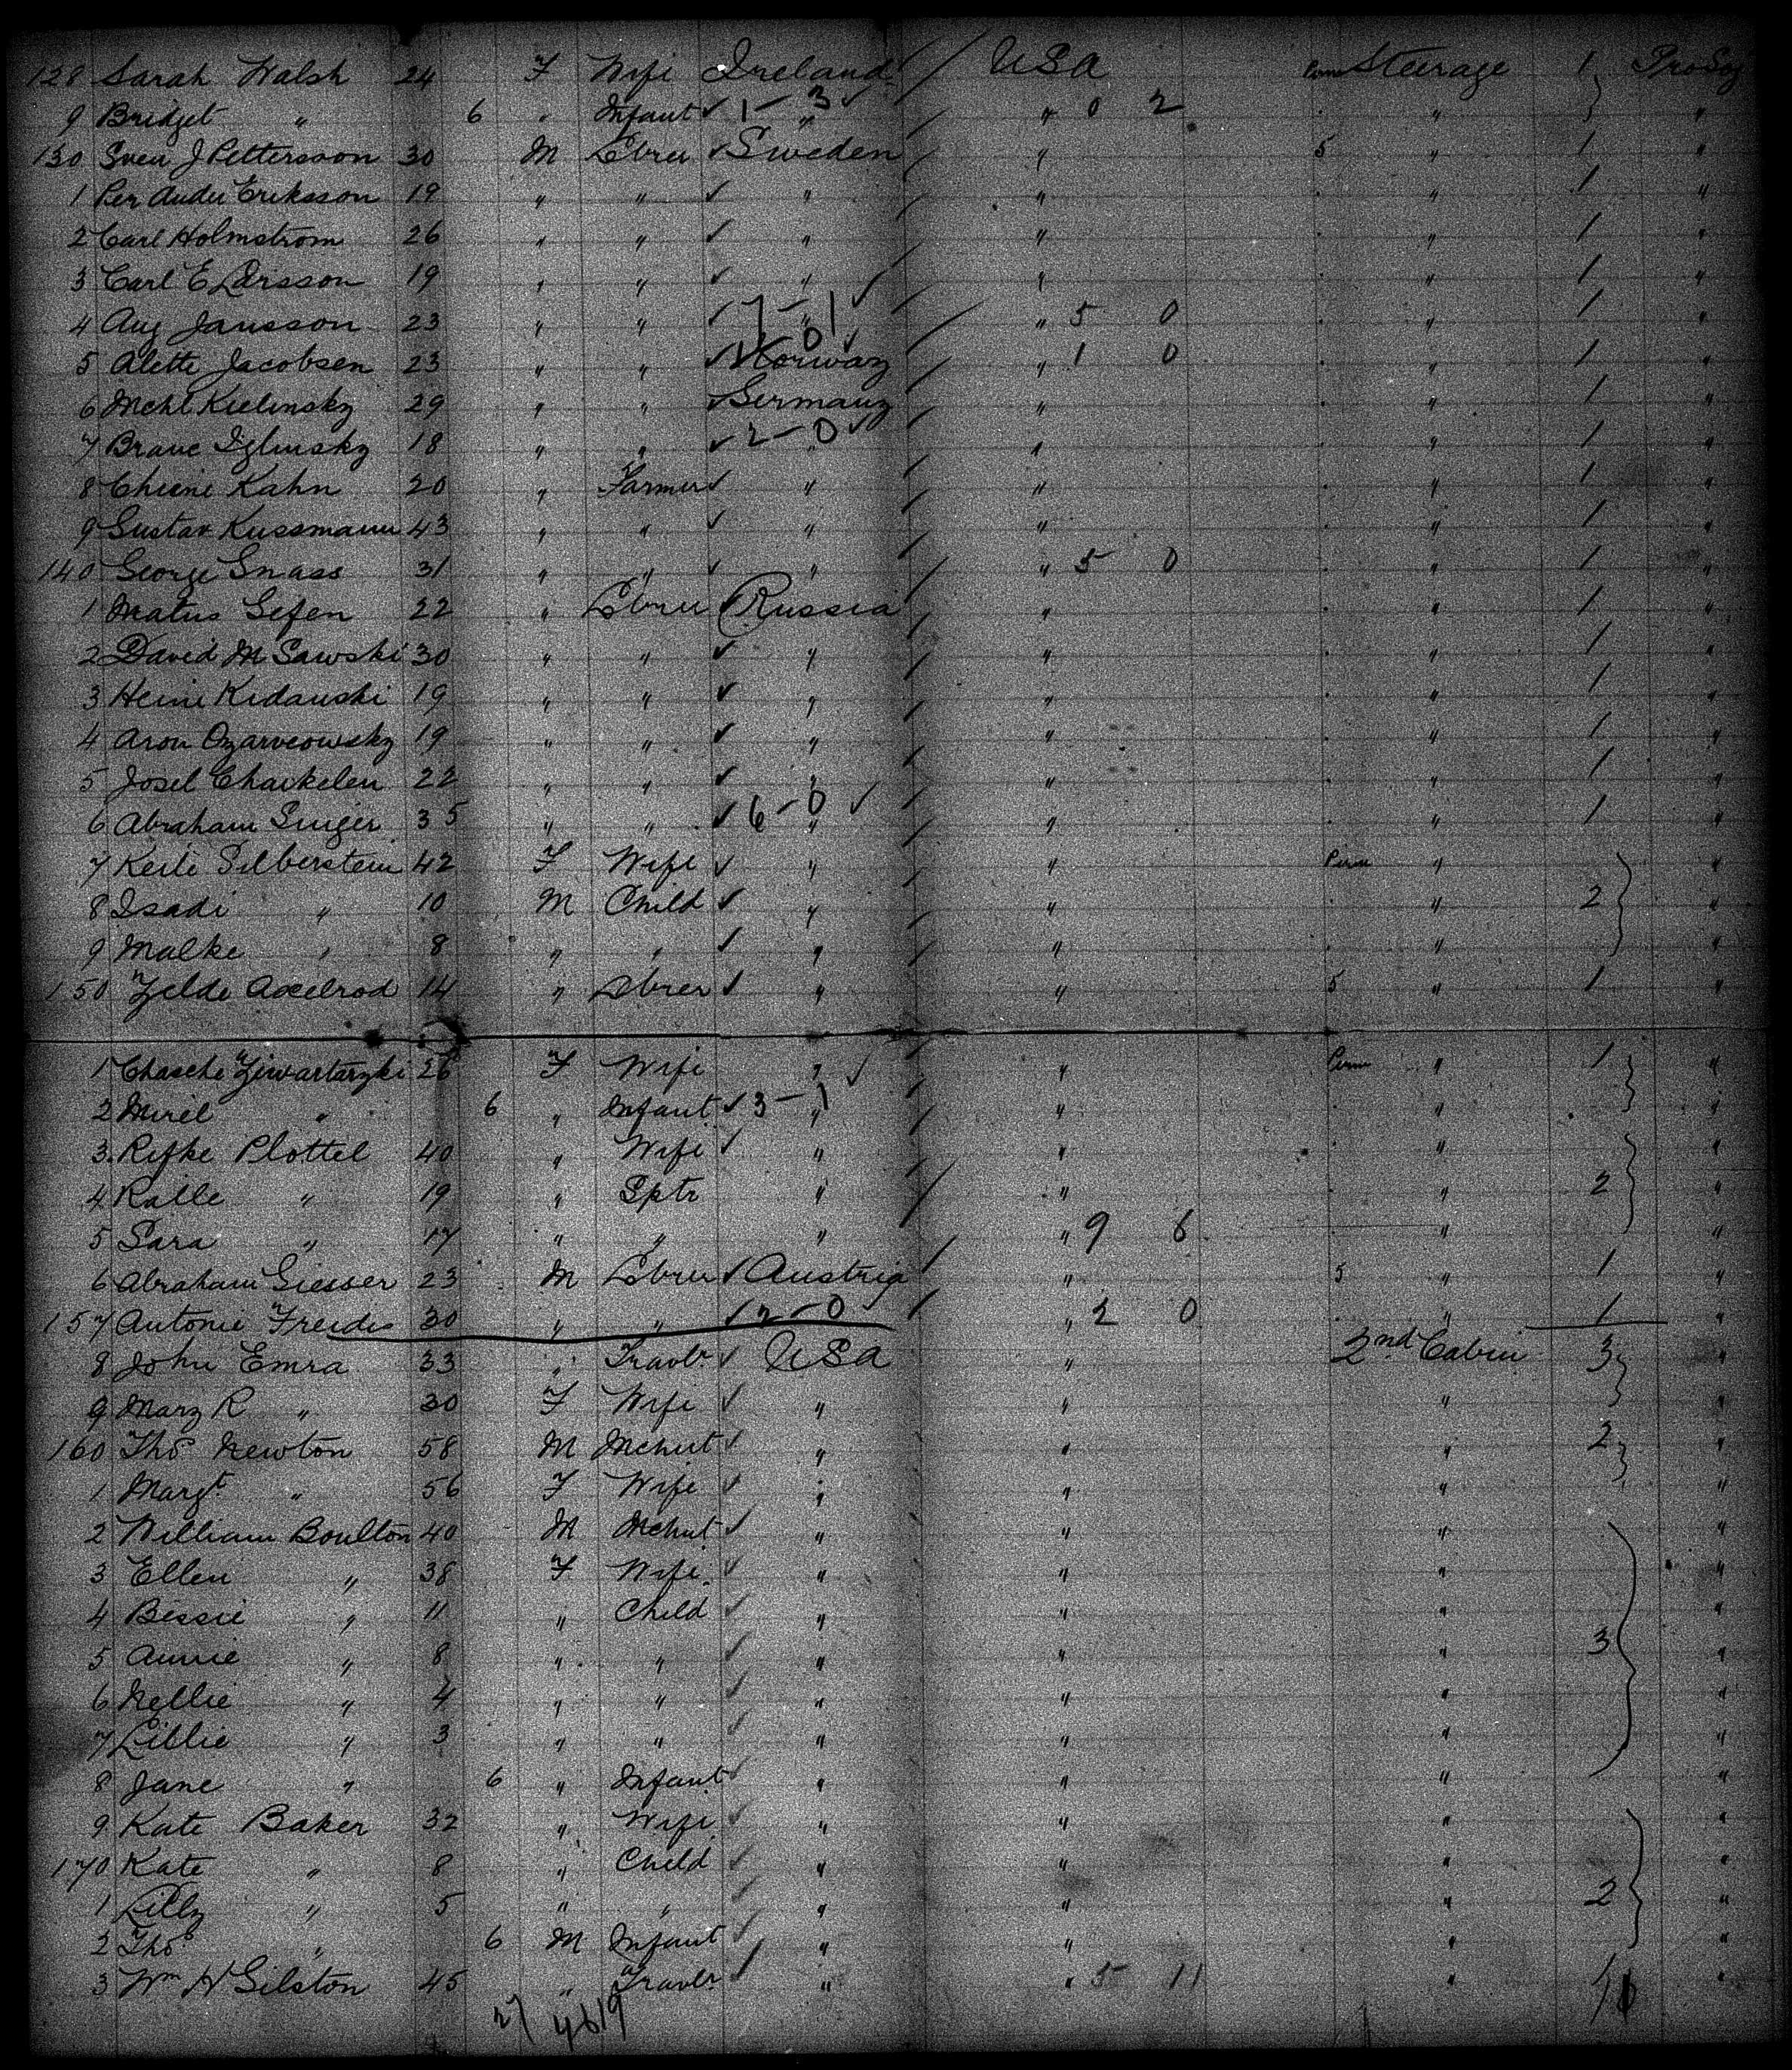 128 Sarah Walsh 24 F Wife Ireland / USA Steerage 1
9 Bridget " 6 " Infant ✓ 1 - 3 ✓ " / " 0 2 " "
130 Sven J Pettersson 30 M Lbrer ✓ Sweden / " 5 " 1 "
1 Per Ander Eriksson 19 " " ✓ " / " " 1 "
2 Carl Holmstrom 26 " " ✓ " / " " 1 "
3 Carl E Larsson 19 " " ✓ " / " " 1 "
4 Aug Jansson 23 " " ✓ 7 - 1 ✓ " / " 5 0 " 1 "
5 Alette Jacobsen 23 " " ✓ 1 - 0 ✓ Norway / " 1 0 " 1 "
6 Mehl Kielinsky 29 " " ✓ Germany / " " 1 "
7 Brane Iglinsky 18 " " ✓ 2 - 0 ✓ " / " " 1 "
8 Chiene Kahn 20 " Farmer ✓ " / " " 1 "
9 Gustav Kussmaun 43 " " ✓ " / " " 1 "
140 George Snass 31 " " ✓ " / " 5 0 " 1 "
1 Matus Gefen 22 " Lbrer ✓ Russia / " " 1 "
2 David M Sawski 30 " " ✓ " / " " 1 "
3 Heine Kidanski 19 " " ✓ " / " " 1 "
4 Aron 19 " " ✓ " / " " 1 "
5 Josel Chaikelen 22 " " ✓ " / " " 1 "
6 Abraham Singer 35 " " ✓ 6 - 0 ✓ " / " " 1 "
7 Keile Silberstein 42 F Wife ✓ " / " "
8 Isadi " 10 M Child ✓ " / " " 2 "
9 Malke " 8 " " ✓ " / " " "
150 Zelde Axelrod 14 " Lbrer ✓ " / " 5 " 1 "
1 Chasche 26 F Wife " ✓ / " " 1 "
2 Mirel " 6 " Infant ✓ 3 - 1 " / " " "
3 Rifke Plottel 40 " Wife ✓ " / " " "
4 Ralle " 19 " Sptr " / " " 2 "
5 Sara " 17 " " " / " 9 6 " "
6 Abraham Giesser 23 M Lbrer ✓ Austria / " 5 " 1 "
157 Antonie Freidis 30 " " ✓ 2 - 0 ✓ / " 2 0 " 1 "
8 John Emra 33 " Travlr ✓ USA " 2nd Cabin 3 "
9 Mary R " 30 F Wife ✓ " " " "
160 Thos Newton 58 M Mchnt ✓ " " " 2 "
1 Margt " 56 F Wife ✓ " " " "
2 William Boulton 40 M Mchnt ✓ " " " "
3 Ellen " 38 F Wife ✓ " " " "
4 Bessie " 11 " Child ✓ " " " "
5 Annie " 8 " " ✓ " " " 3 "
6 Nellie " 4 " " ✓ " " " "
7 Lillie " 3 " " ✓ " " " "
8 Jane " 6 " Infant ✓ " " " "
9 Kate Baker 32 " Wife ✓ " " " "
170 Kate " 8 " Child ✓ " " " "
1 Lilly " 5 " " ✓ " " " 2 "
2 Thos " 6 M Infant ✓ " " " "
3 Wm H Gilston 45 " Travlr ✓ " " 5 11 " 1 "
27 4619